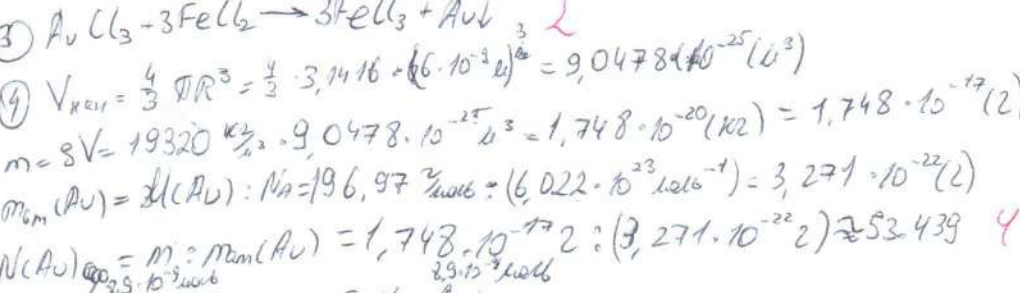 3) AuCl₃ + 3FeCl₂ → 3FeCl₃ + Au↓ 2
4) Vнач = 4/3 πR³ = 4/3 · 3,1416 · (6·10⁻⁹ м)³ = 9,0478·10⁻²⁵ (м³)
m = ρV = 19320 кг/м³ · 9,0478·10⁻²⁵ м³ = 1,748·10⁻²⁰ (кг) = 1,748·10⁻¹⁷ (г)
mат (Au) = M(Au) : NA = 196,97 г/моль : (6,022·10²³ моль⁻¹) = 3,271·10⁻²² (г)
N(Au) = m : mат(Au) = 1,748·10⁻¹⁷ г : (3,271·10⁻²² г) ≈ 53.439 4
8,9·10⁻⁹ моль 8,9·10⁻⁹ моль